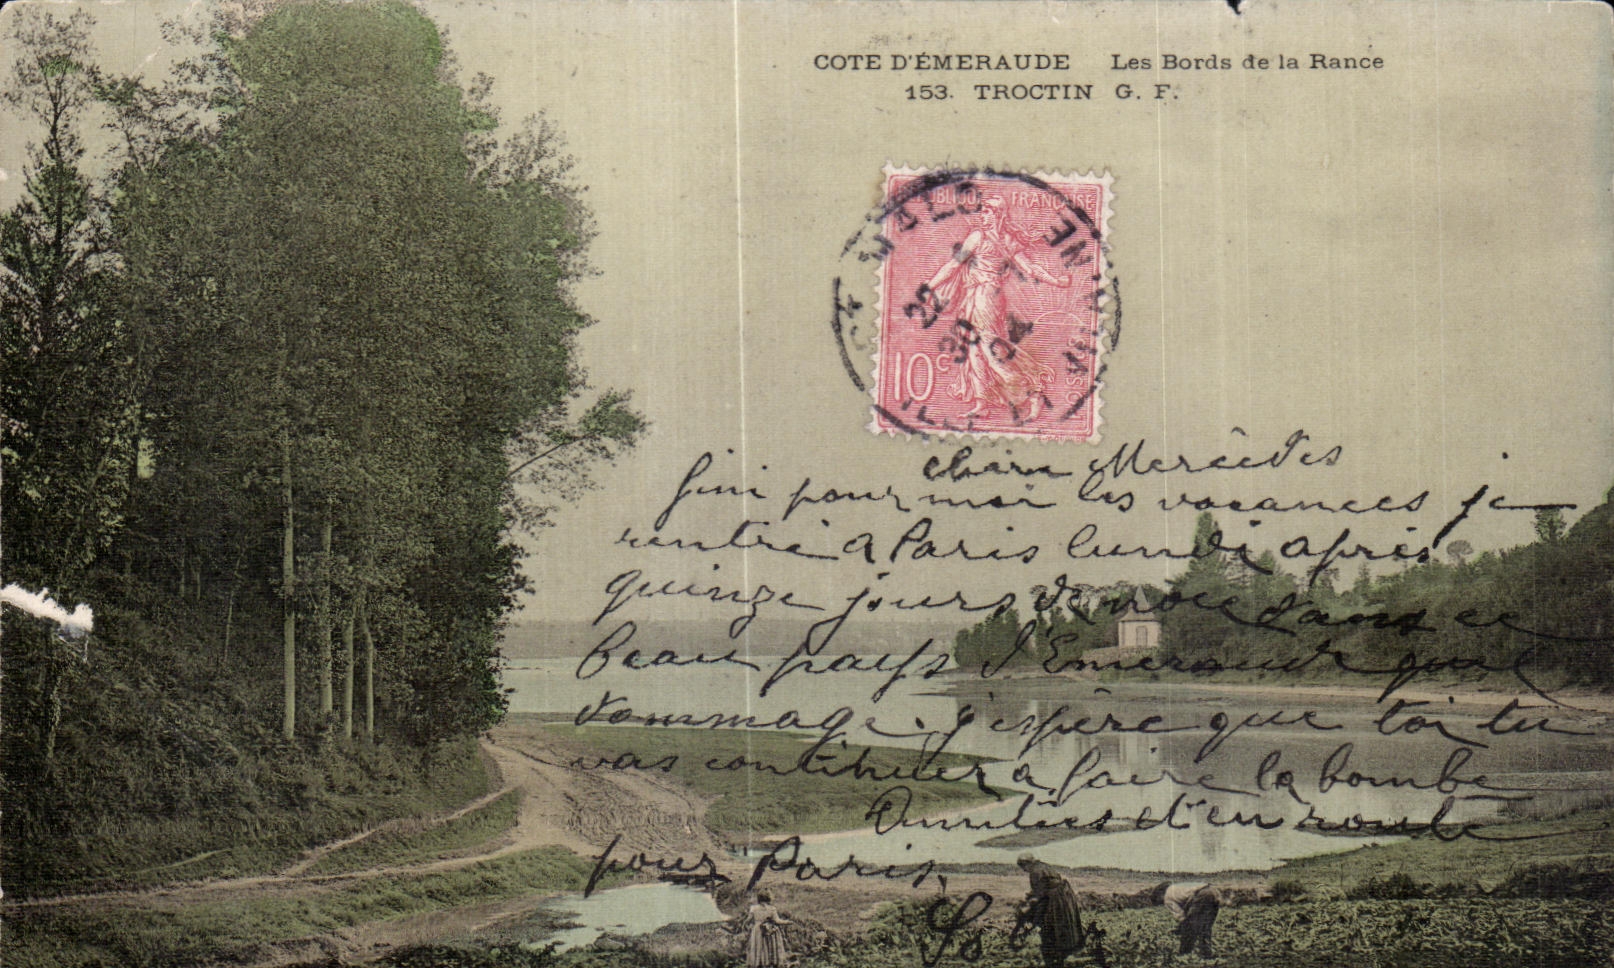 COTE D'ÉMERAUDE Les Bords de la Rance
153. TROCTIN G. F.
FRANÇAISE
ST MALO
ILLE ET VILAINE
22
30
04
10c
chère Mercédès
fini pour moi les vacances je
rentre à Paris lundi après
quinze jours de dans ce
beau pays d'Emeraude quel
dommage. j'espère que toi tu
vas continuer a faire la bombe
Amitiés et en route
pour Paris.